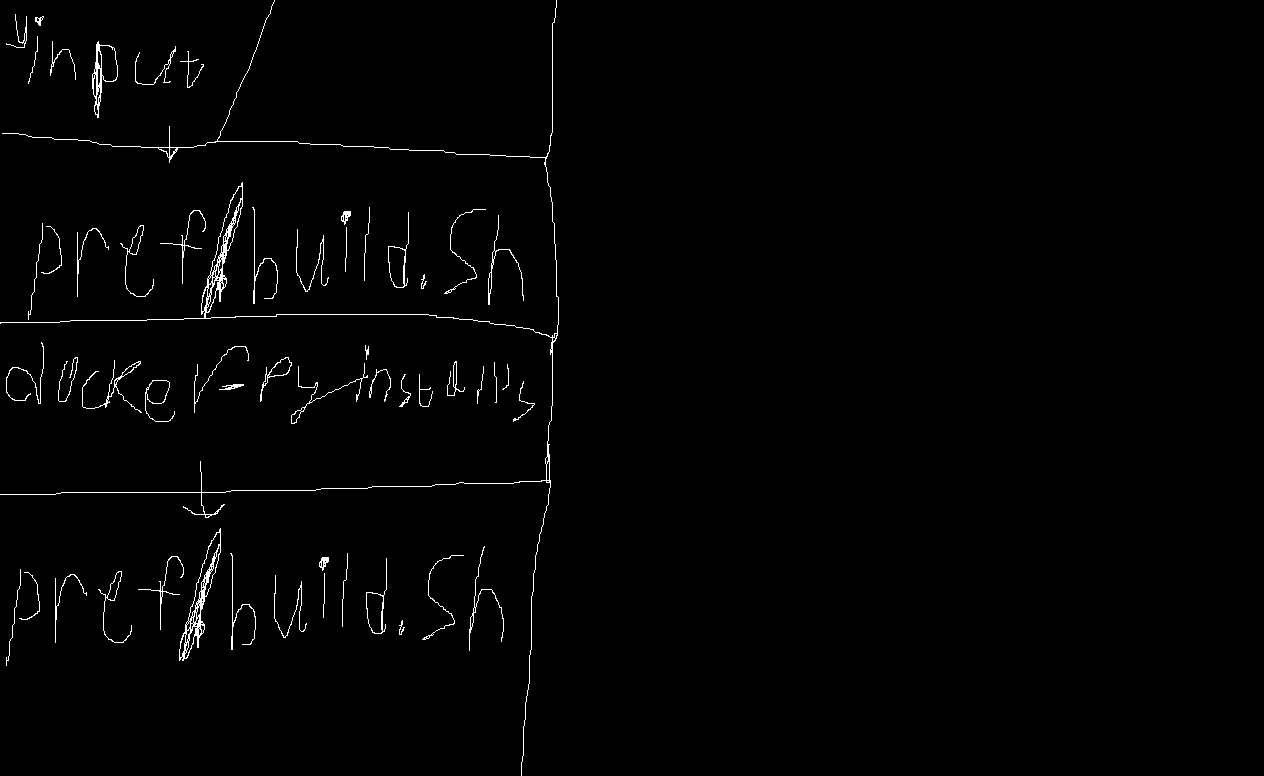 input
pref/build.sh
docker-py installs
pref/build.sh